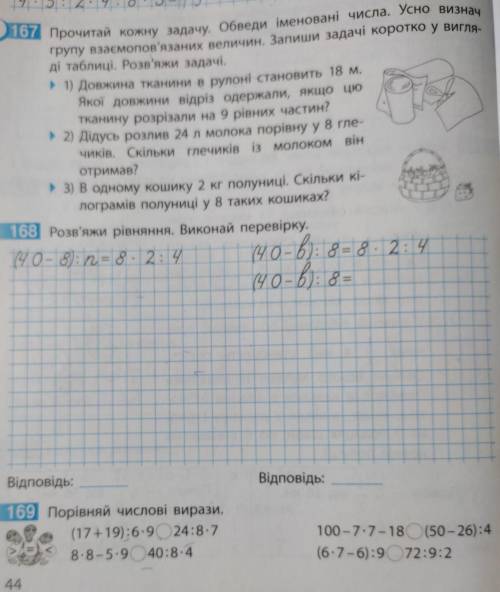 167 Прочитай кожну задачу. Обведи іменовані числа. Усно визнач
групу взаємопов'язаних величин. Запиши задачі коротко у вигля-
ді таблиці. Розв'яжи задачі.
1) Довжина тканини в рулоні становить 18 м.
Якої довжини відріз одержали, якщо цю
тканину розрізали на 9 рівних частин?
2) Дідусь розлив 24 л молока порівну у 8 гле-
чиків. Скільки глечиків із молоком він
отримав?
3) В одному кошику 2 кг полуниці. Скільки кі-
лограмів полуниці у 8 таких кошиках?
168 Розв'яжи рівняння. Виконай перевірку.
(40-8):n=8·2:4
(40-b):8=8·2:4
(40-b):8=
Відповідь:
Відповідь:
169 Порівняй числові вирази.
(17+19):6·9 24:8·7
100-7·7-18 (50-26):4
> = <
8·8-5·9 40:8·4
(6·7-6):9 72:9:2
44